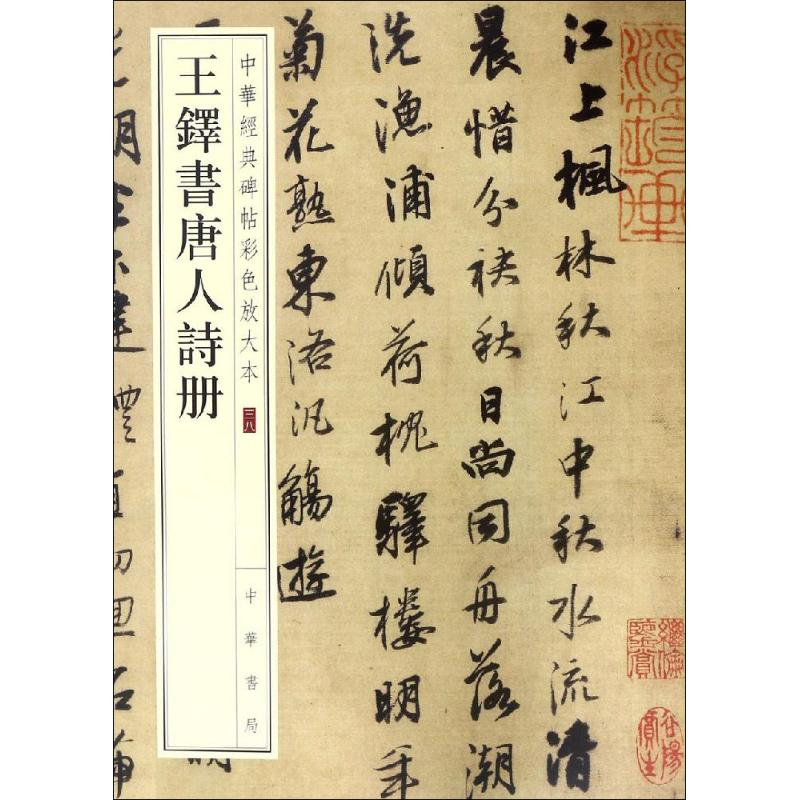 江上楓林秋江中秋水流清
晨惜分袂秋日尚同舟落潮
洗漁浦傾荷槐驛樓明年
菊花熟東洛汎觴遊
中華經典碑帖彩色放大本
三八
中華書局
王鐸書唐人詩册